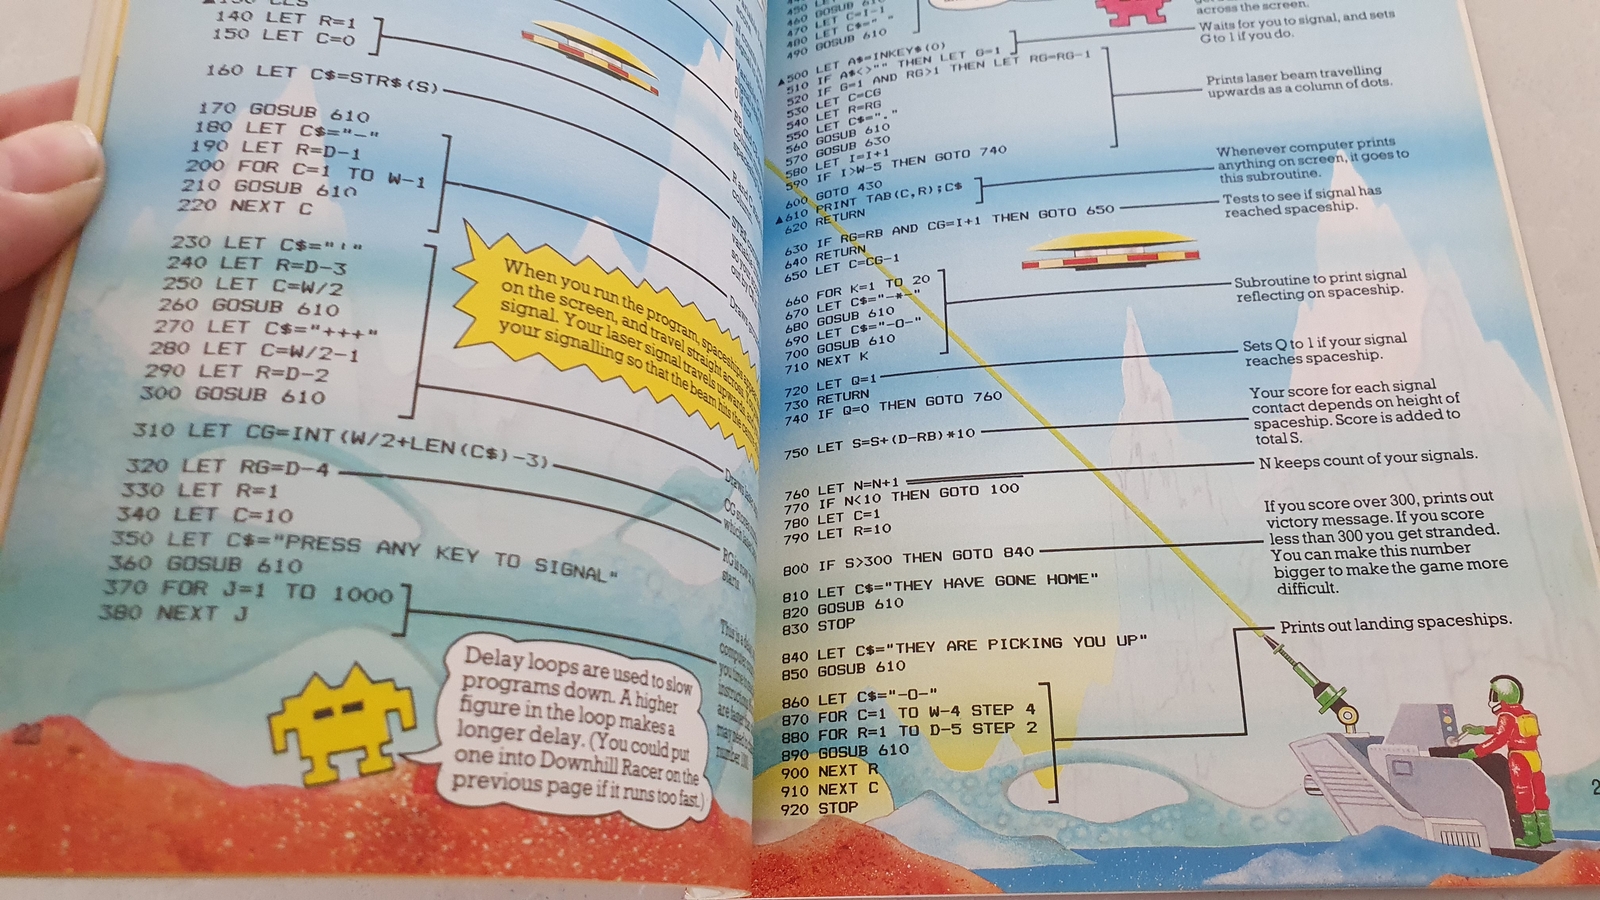 140 LET R=1
150 LET C=0
160 LET C$=STR$(S)
170 GOSUB 610
180 LET C$="-"
190 LET R=D-1
200 FOR C=1 TO W-1
210 GOSUB 610
220 NEXT C
230 LET C$="!"
240 LET R=D-3
250 LET C=W/2
260 GOSUB 610
270 LET C$="+++"
280 LET C=W/2-1
290 LET R=D-2
300 GOSUB 610
310 LET CG=INT(W/2+LEN(C$)-3)
320 LET RG=D-4
330 LET R=1
340 LET C=10
350 LET C$="PRESS ANY KEY TO SIGNAL"
360 GOSUB 610
370 FOR J=1 TO 1000
380 NEXT J
When you run the program, spaceships
on the screen, and travel straight
signal. Your laser signal travels upwards,
your signalling so that the beam hits the
Delay loops are used to slow
programs down. A higher
figure in the loop makes a
longer delay. (You could put
one into Downhill Racer on the
previous page if it runs too fast.)
460 GOSUB 610
470 LET C=I-1
480 LET C$=" "
490 GOSUB 610
▲500 LET A$=INKEY$(0)
510 IF A$<>"" THEN LET G=1
520 IF G=1 AND RG>1 THEN LET RG=RG-1
530 LET C=CG
540 LET R=RG
550 LET C$="."
560 GOSUB 610
570 GOSUB 630
580 LET I=I+1
590 IF I>W-5 THEN GOTO 740
600 GOTO 430
▲610 PRINT TAB(C,R);C$
620 RETURN
630 IF RG=RB AND CG=I+1 THEN GOTO 650
640 RETURN
650 LET C=CG-1
660 FOR K=1 TO 20
670 LET C$="-*-"
680 GOSUB 610
690 LET C$="-O-"
700 GOSUB 610
710 NEXT K
720 LET Q=1
730 RETURN
740 IF Q=0 THEN GOTO 760
750 LET S=S+(D-RB)*10
760 LET N=N+1
770 IF N<10 THEN GOTO 100
780 LET C=1
790 LET R=10
800 IF S>300 THEN GOTO 840
810 LET C$="THEY HAVE GONE HOME"
820 GOSUB 610
830 STOP
840 LET C$="THEY ARE PICKING YOU UP"
850 GOSUB 610
860 LET C$="-O-"
870 FOR C=1 TO W-4 STEP 4
880 FOR R=1 TO D-5 STEP 2
890 GOSUB 610
900 NEXT R
910 NEXT C
920 STOP
across the screen.
Waits for you to signal, and sets
G to 1 if you do.
Prints laser beam travelling
upwards as a column of dots.
Whenever computer prints
anything on screen, it goes to
this subroutine.
Tests to see if signal has
reached spaceship.
Subroutine to print signal
reflecting on spaceship.
Sets Q to 1 if your signal
reaches spaceship.
Your score for each signal
contact depends on height of
spaceship. Score is added to
total S.
N keeps count of your signals.
If you score over 300, prints out
victory message. If you score
less than 300 you get stranded.
You can make this number
bigger to make the game more
difficult.
Prints out landing spaceships.